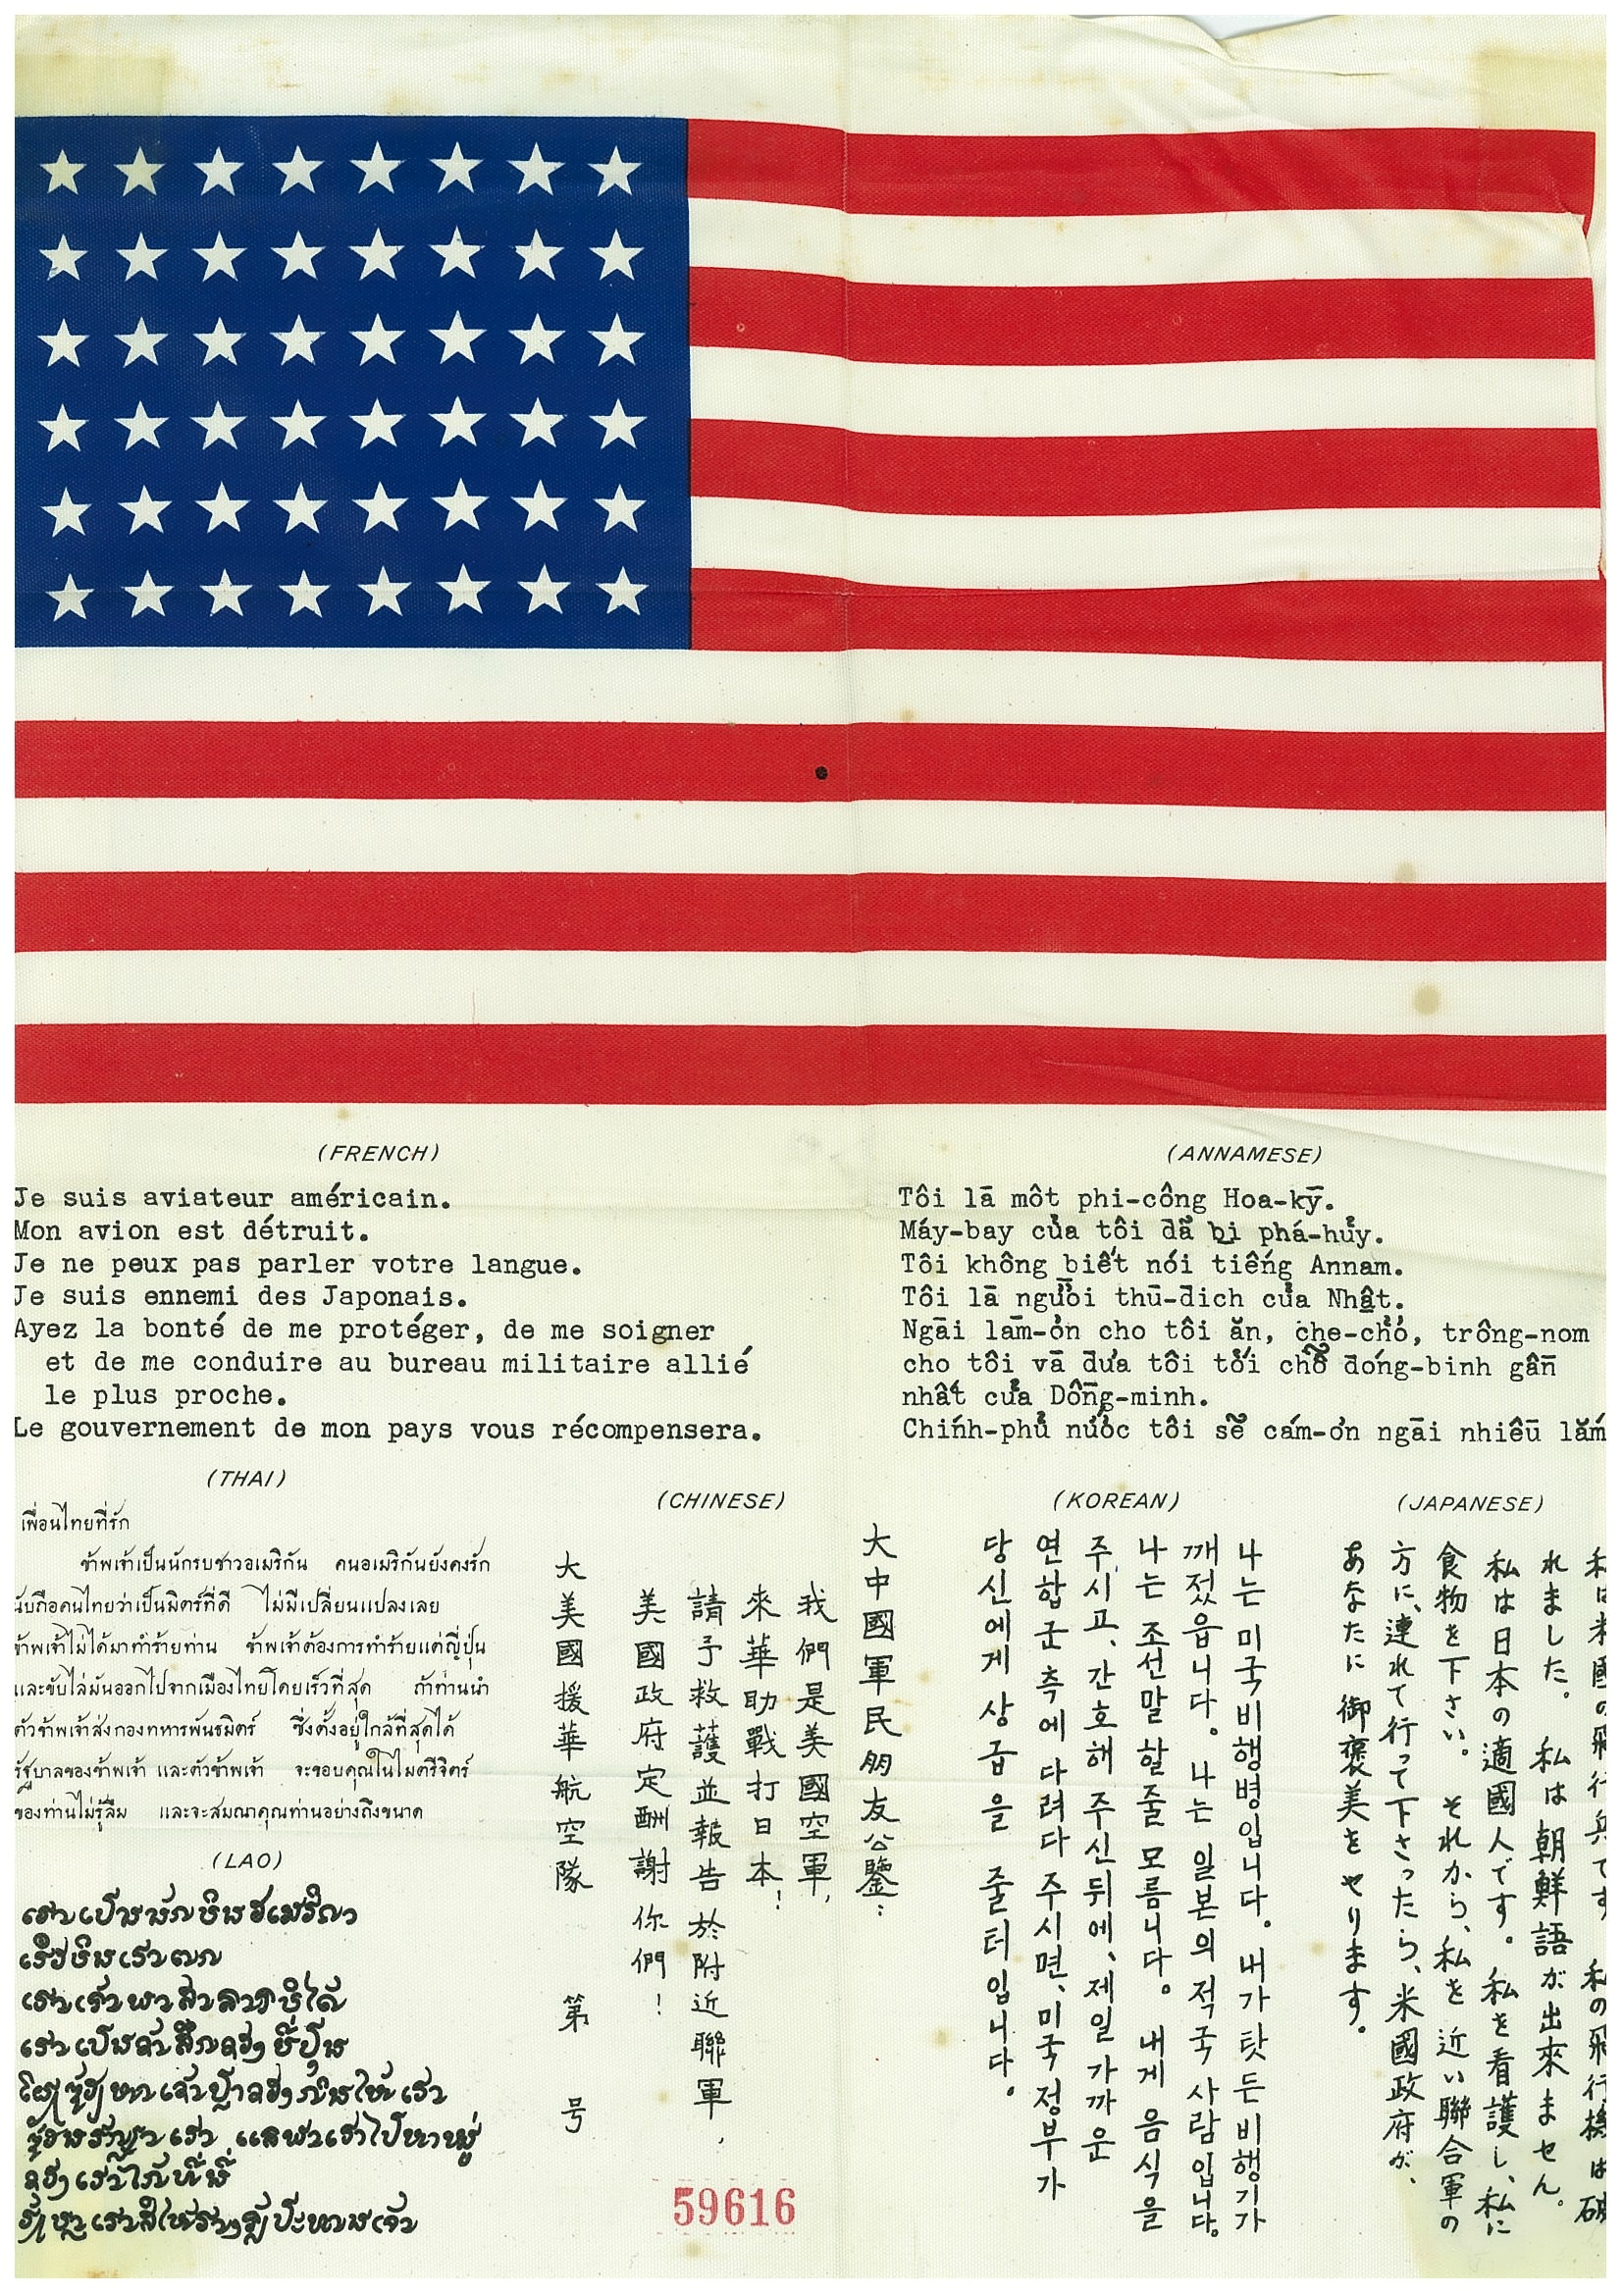 (FRENCH)
Je suis aviateur américain.
Mon avion est détruit.
Je ne peux pas parler votre langue.
Je suis ennemi des Japonais.
Ayez la bonté de me protéger, de me soigner
et de me conduire au bureau militaire allié
le plus proche.
Le gouvernement de mon pays vous récompensera.
(ANNAMESE)
Tôi lā môt phi-công Hoa-kȳ.
Máy-bay của tôi đẫ bị phá-hủy.
Tôi không biết nói tiếng Annam.
Tôi lā người thū-đich của Nhật.
Ngāi lām-ơn cho tôi ăn, che-chở, trông-nom
cho tôi vā đưa tôi tới chỗ đóng-binh gần
nhất của Dồng-minh.
Chính-phủ nước tôi sẽ cám-ơn ngāi nhiều lắm
(THAI)
เพื่อนไทยที่รัก
ข้าพเจ้าเป็นนักรบชาวอเมริกัน คนอเมริกันยังคงรัก
นับถือคนไทยว่าเป็นมิตร์ที่ดี ไม่มีเปลี่ยนแปลงเลย
ข้าพเจ้าไม่ได้มาทำร้ายท่าน ข้าพเจ้าต้องการทำร้ายแต่ญี่ปุ่น
และขับไล่มันออกไปจากเมืองไทยโดยเร็วที่สุด ถ้าท่านนำ
ตัวข้าพเจ้าส่งกองทหารพันธมิตร์ ซึ่งตั้งอยู่ใกล้ที่สุดได้
รัฐบาลของข้าพเจ้า และตัวข้าพเจ้า จะขอบคุณในไมตรีจิตร์
ของท่านไม่รู้ลืม และจะสมณาคุณท่านอย่างถึงขนาด
(LAO)
(CHINESE)
大中國軍民朋友公鑒：
我們是美國空軍，
來華助戰打日本！
請予救護並報告於附近聯軍，
美國政府定酬謝你們！
大美國援華航空隊 第 号
59616
(KOREAN)
나는 미국비행병입니다. 내가 탓든 비행기가
깨젔읍니다. 나는 일본의 적국사람입니다.
나는 조선말 할줄 모름니다. 내게 음식을
주시고, 간호해 주신뒤에, 제일 가까운
연합군측에 다려다 주시면, 미국정부가
당신에게 상급을 줄터입니다.
(JAPANESE)
私は米國の飛行兵です 私の飛行機は破
れました。 私は朝鮮語が出來ません。
私は日本の適國人です。 私を看護し、私に
食物を下さい。 それから、私を近い聯合軍の
方に、連れて行って下さったら、米國政府が、
あなたに御褒美をやります。